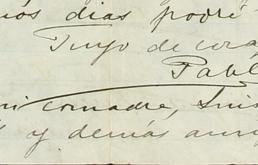 dias podré
Tuyo de cora
Pabl
comadre, Luis
y demás am